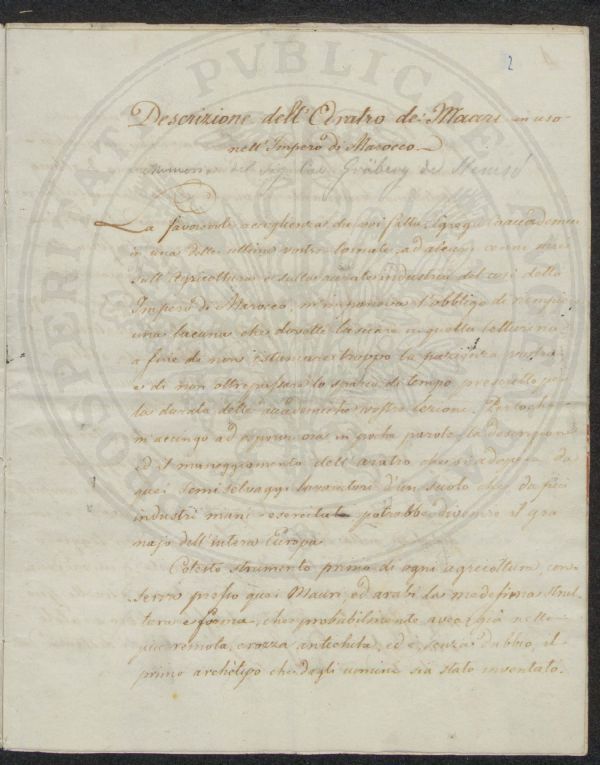 2
Descrizione dell'Aratro dei Mauri in uso
nell'Impero di Marocco.
Memoria del Sig. Cav. Gråberg de Hemsö
La favorevole accoglienza da voi fatta, egregi accademici
in una delle ultime vostre tornate, ad alcuni cenni miei
sull'agricoltura e sulla industria del così detto
Impero di Marocco, m'imponeva l'obbligo di riempire
una lacuna che dovetti lasciare in quella lettura
a fine di non estancare troppo la pazienza vostra
e di non oltrepassare lo spazio di tempo prescritto per
la durata delle accademiche vostre lezioni. Perloché
m'accingo ad esporvi ora in poche parole la descrizione
ed il maneggiamento dell'aratro che si adopera da
quei semiselvaggi lavoratori d'un suolo che da più
industri mani esercitato potrebbe divenire il gra-
najo dell'intera Europa.
Cotesto strumento primo di ogni agricoltura, con-
serva presso quei Mauri, ed arabi la medesima strut-
tura e forma, che probabilmente avea già nella
più remota, e rozza antichità, ed è, senza dubbio, il
primo archètipo che dagli uomini sia stato inventato.
PROSPERITATI PVBLICAE AVGENDAE